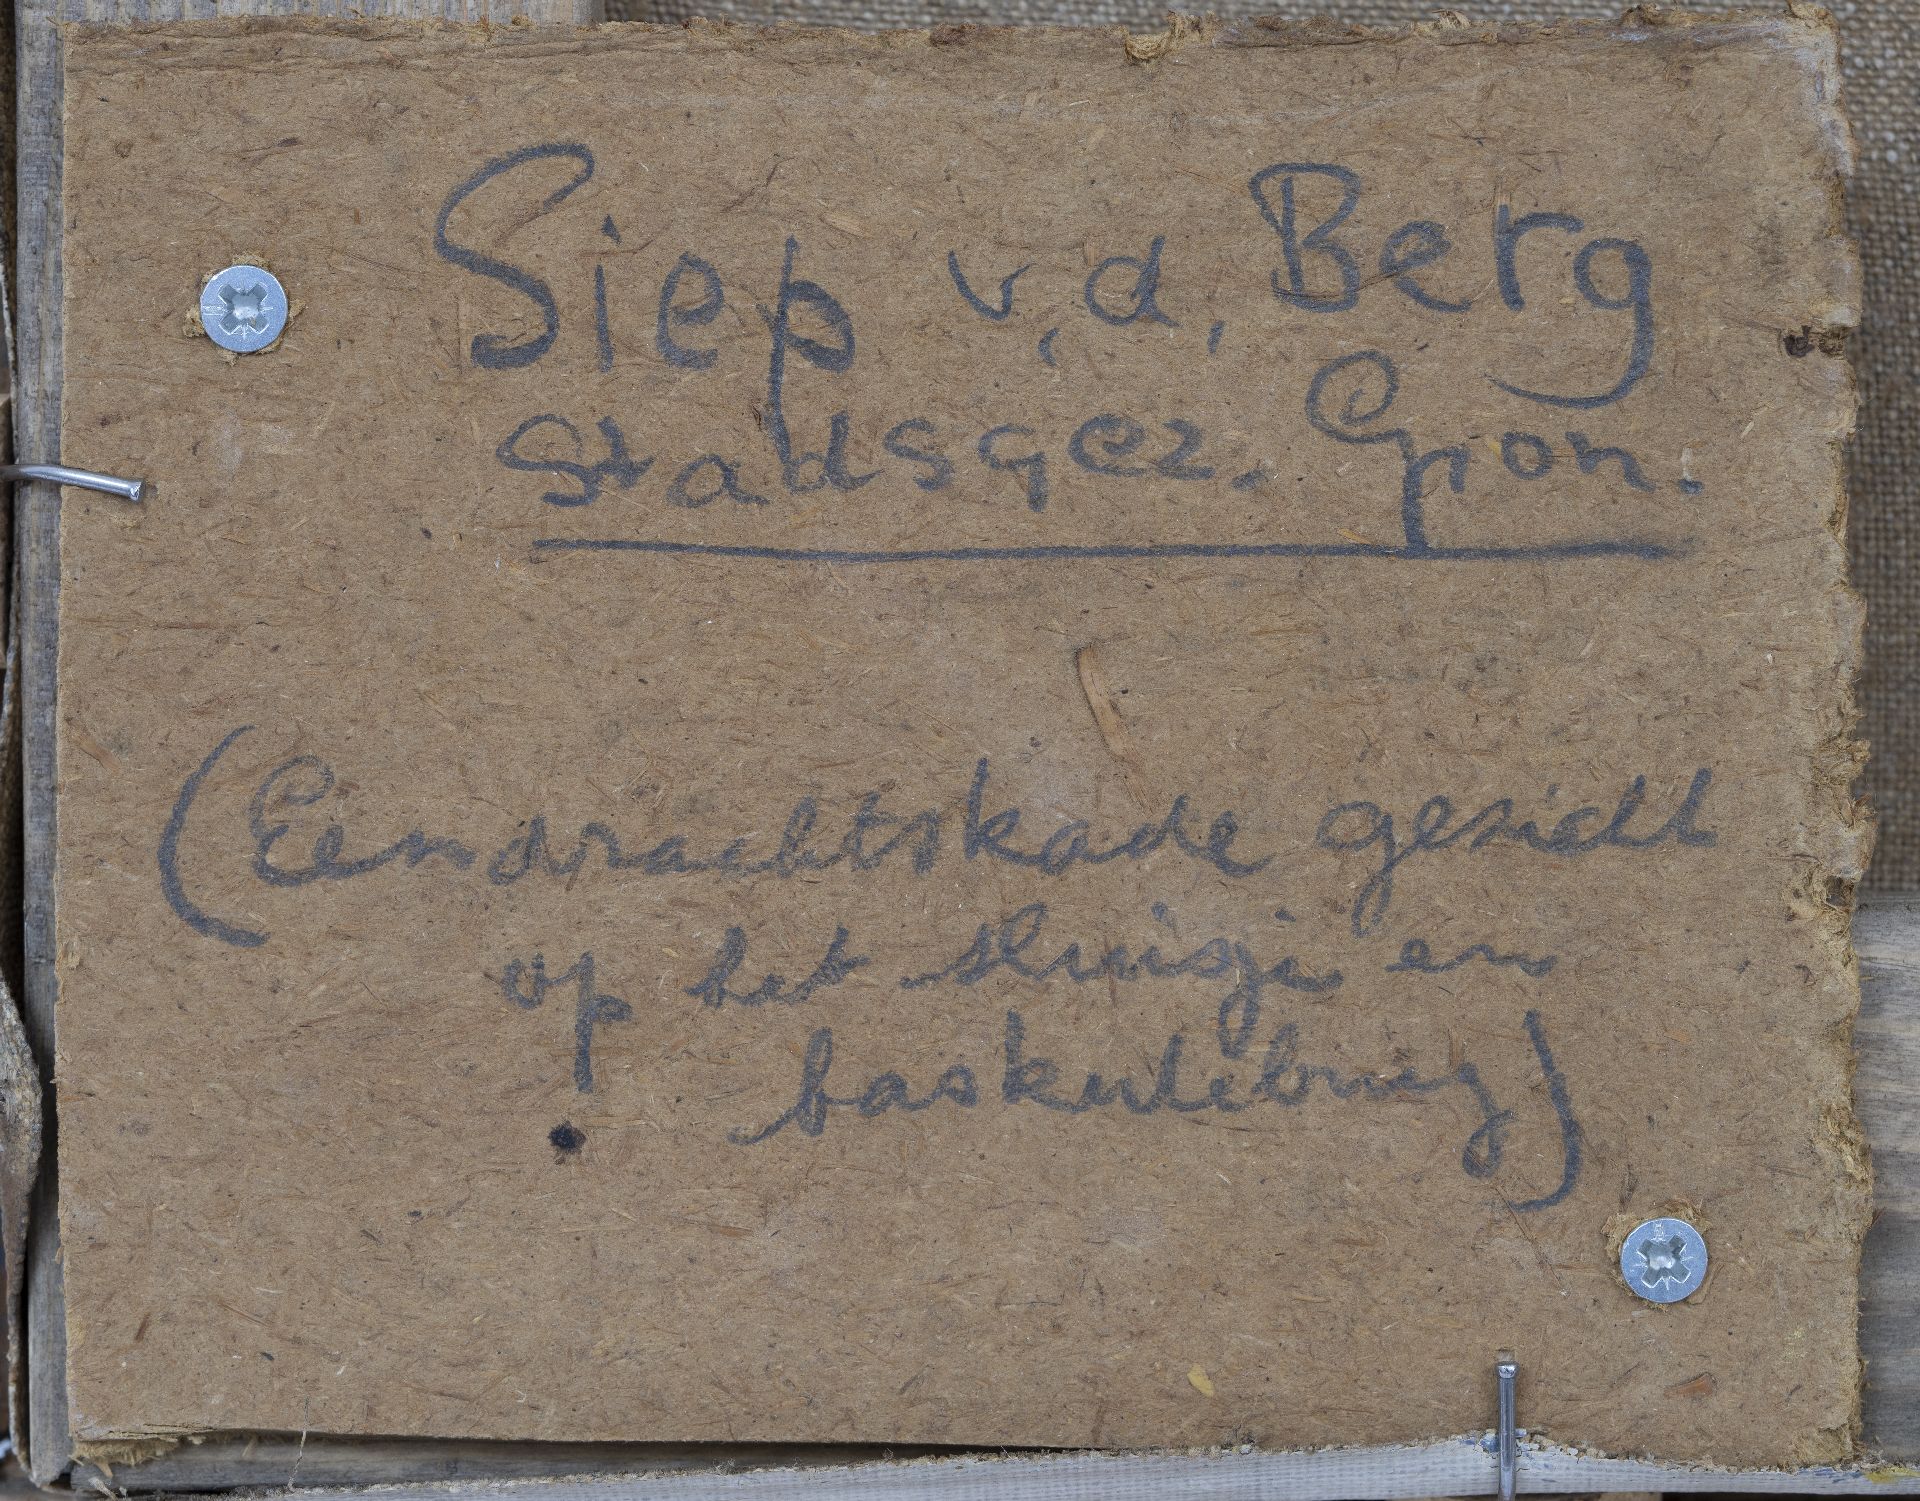 Siep v.d. Berg
stadsgez. Gron.
(Eendrachtskade gezicht
op het sluisje en
baskulebrug)